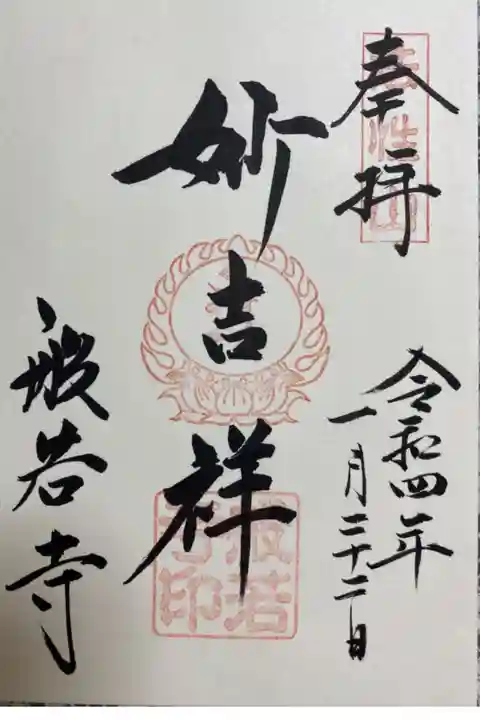 奉拝
法性山
令和四年
一月二十二日
妙吉祥
般若寺印
般若寺